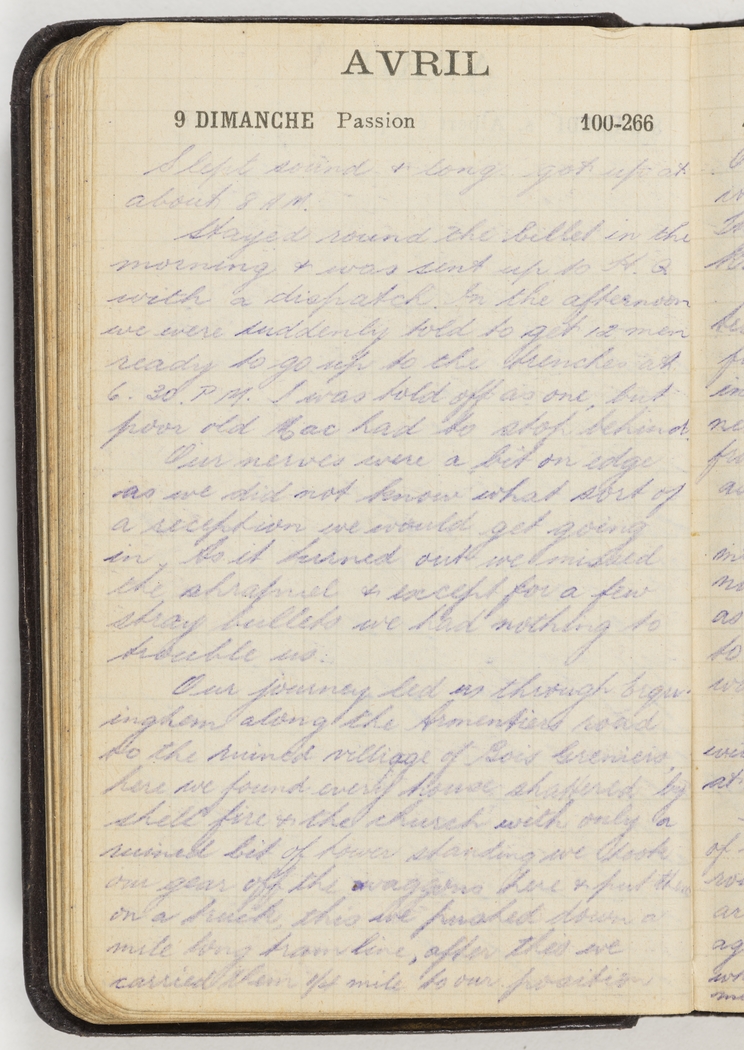 AVRIL
9 DIMANCHE Passion 100-266
Slept sound & long got up at
about 8 A.M.
Stayed round the billet in the
morning & was sent up to H. Q
with a dispatch. In the afternoon
we were suddenly told to get 12 men
ready to go up to the trenches at
6. 30. P M. I was told off as one, but
poor old Mac had to stop behind.
Our nerves were a bit on edge
as we did not know what sort of
a reception we would get going
in. As it turned out we missed
the shrapnel & except for a few
stray bullets we had nothing to
trouble us.
Our journey led us through Erqu-
inghem along the Armentiers road
to the ruined villiage of Bois Greniers,
here we found every house shattered by
shell fire & the church with only a
ruined bit of tower standing we took
our gear off the waggons here & put them
on a truck, this we pushed down a
mile long tram line, after this we
carried them 3/4 mile to our position